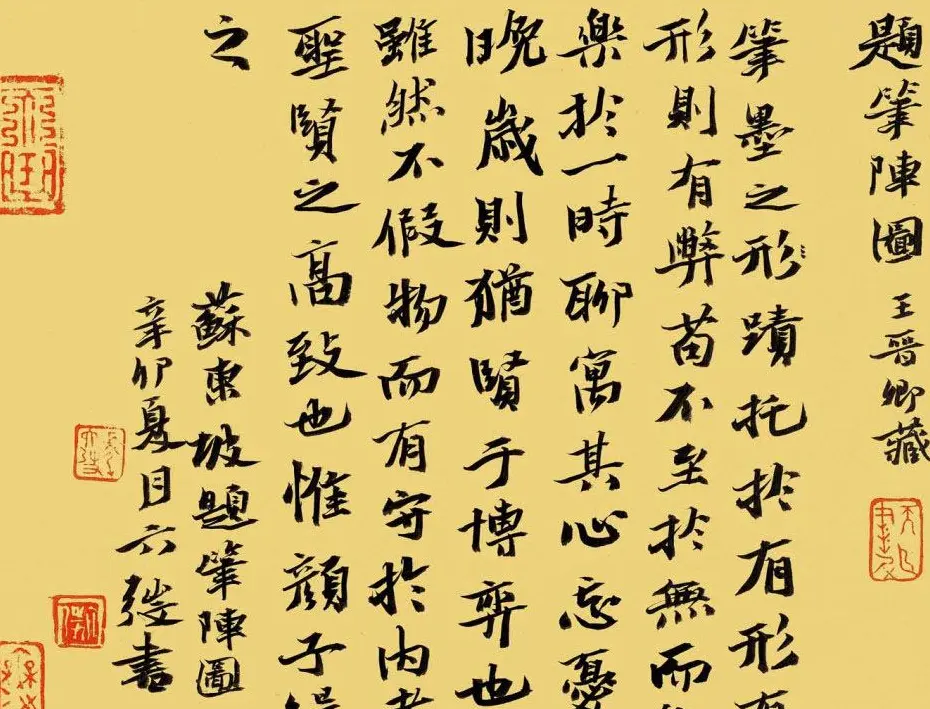 題筆陣圖 王晉卿藏
筆墨之形蹟托於有形有
形則有弊苟不至於無而
樂於一時聊寓其心忘憂
晚歲則猶賢于博弈也
雖然不假物而有守於内者
聖賢之高致也惟顔子得
之
蘇東坡題筆陣圖
辛卯夏月六書